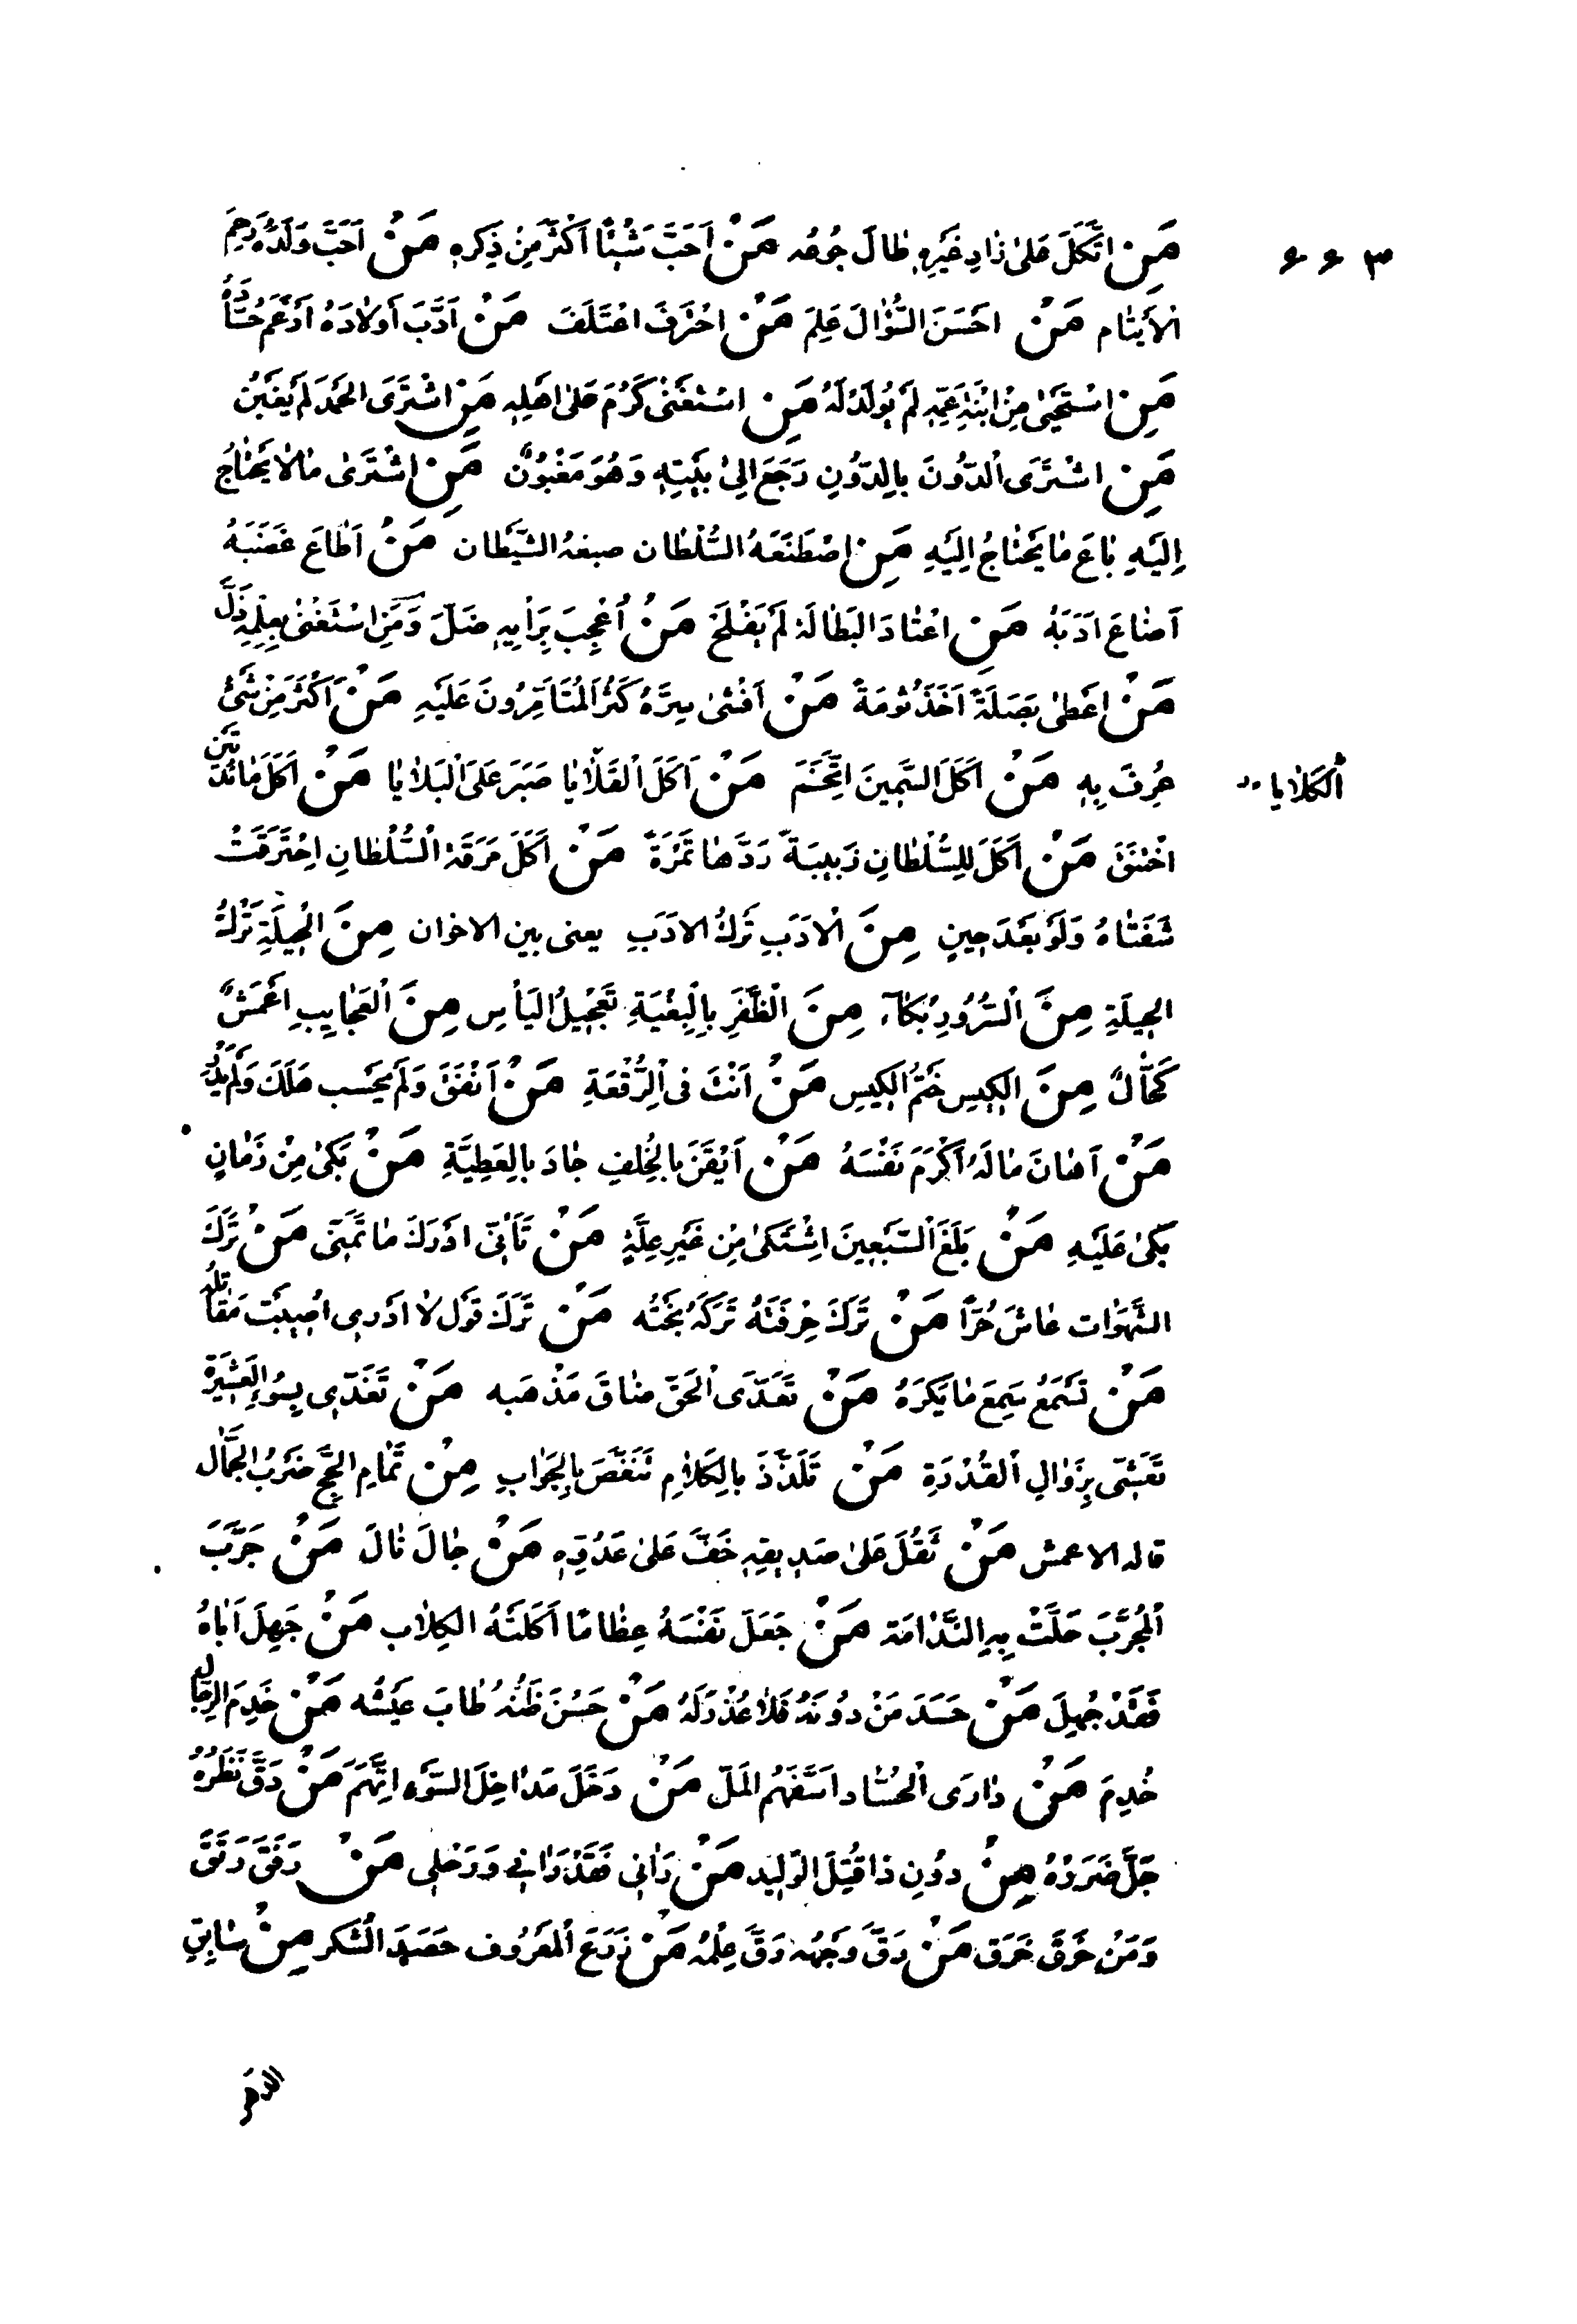 ٦٦٣
مَنِ اتَّكَلَ عَلىٰ زٰادِ غَيْرِهِ طٰالَ جُوعُه مَنْ اَحَبَّ شَيْئًا اَكْثَرَ مِنْ ذِكرِهِ مَنْ اَحَبَّ وَلَدَهُ رَحِمَ
الْأَيْتٰام مَنْ احَْسَنَ السُّؤٰالَ عَلِمَ مَنْ احْتَرَفَ اعْتَلَفَ مَنْ اَدَّبَ أَوْلٰادَهُ اَرْغَمَ حُسّٰادَهُ
مَنِ اسْتَحْيىٰ مِنْ ابْنَةِ عَمِّهِ لَمْ يُولَدْ لَهُ مَنِ اسْتَغْنىٰ كَرُمَ عَلىٰ اهَْلِهِ مَنِ اشْتَرَى الْحَمْدَ لَمْ يُغْبَنْ
مَنِ اشْتَرَى اْلدّوُنَ بِالدّوُنِ رَجَعَ اِلىٰ بَيْتِهِ وَهُوَ مَغْبُونٌ مَنِ اشْتَرىٰ مٰالاٰ يَحْتٰاجُ
اِلَيْهِ بٰاعَ مٰا يَحْتٰاجُ اِلَيْهِ مَنِ اصْطَنَعَهُ السُّلْطٰان صبغهُ الشَّيْطٰان مَنْ اَطٰاعَ غَضَبَهُ
اَضٰاعَ اَدَبَهُ مَنِ اعْتٰادَ الْبَطٰالَةَ لَمْ يَفْلَحْ مَنْ اُعْجِبَ بِرَأْيِهِ ضَلَّ وَمَنِ اسْتَغْنىٰ بِعِلْمِهِ ذَلَّ
مَنْ اَعْطىٰ بَصَلَةً اَخَذَ ثُومَةً مَنْ اَفْشىٰ سِرَّهُ كَثُرَ الْمُتَاَمِّرُونَ عَلَيْهِ مَنْ اَكْثَرَ مِنْ شَىْءٍ
عُرِفَ بِهِ مَنْ اَكَلَ السَّمِينَ اتَّخَمَ مَنْ اَكَلَ اْلقَلاٰيٰا صَبَرَ عَلَى الْبَلاٰيٰا مَنْ اَكَلَ مٰائِدَتَيْنِ
اَلْكَلاٰيا
اخْتَنَقَ مَنْ اَكَلَ لِلسُّلْطٰانِ زَبِيبَةً رَدَّهٰا تَمْرَةً مَنْ اَكَلَ مَرَقَةَ السُّلْطٰانِ اِحْتَرَقَتْ
شَفَتٰاهُ وَلَوْ بَعْدَ حِينٍ مِنَ الْاَدَبِ تَرْكُ الاَدَبِ يعنى بين الاخوان مِنَ الْحِيلَةِ تَرْكُ
الْحِيلَةِ مِنَ السُّرُورِ بُكٰآء مِنَ الْظَّفَرِ بِالْبِغْيَةِ تَعْجِيلُ الْيَأْسِ مِنَ الْعَجٰايِبِ اَعْمَشٌ
كَحّٰالٌ مِنَ الْكِيسِ خَتْمُ الْكِيسِ مَنْ اَنْتَ فى الرُّقْعَةِ مَنْ اَنْفَقَ وَلَمْ يَحْسب هَلَكَ وَلَمْ يَدْرِ
مَنْ اَهٰانَ مٰالَهُ اَكْرَمَ نَفْسَهُ مَنْ اَيْقَنَ بِالْخَلَفِ جٰادَ بِالْعَطِيَّةِ مَنْ بَكىٰ مِنْ زَمٰانٍ
بَكىٰ عَلَيْهِ مَنْ بَلَغَ السَّبْعِينَ اشْتَكىٰ مِنْ غَيْرِ عِلَّةٍ مَنْ تَأَنّىٰ ادَْرَكَ مٰا تَمَنّىٰ مَنْ تَرَكَ
الشَّهَوٰات عٰاشَ حُرًّا مَنْ تَرَكَ حِرْفَتَهُ تَرَكَهُ بَخْتُه مَنْ تَرَكَ قَوْل لاٰ ادَْرى اُصِيبَتْ مَقٰاتِلُهُ
مَنْ تَسَمَّعَ سَمِعَ مٰا يَكْرَهُ مَنْ تَعَدَّى الْحَقّ ضٰاقَ مَذْهَبه مَنْ تَغَدّىٰ بِسُوءِ الْعَشِيرَةِ
تَعَشّىٰ بِزَوٰالِ الْقُدْرَةِ مَنْ تَلَذَّذَ بِالْكَلاٰمِ تَنَغَّصَ بِالْجَوٰابِ مِنْ تَمٰامِ الْحَجِّ ضَرْبُ الْجَمّٰال
قاله الاعمش مَنْ ثَقُلَ عَلىٰ صَدِيقِهِ خَفَّ عَلىٰ عَدُوِّهِ مَنْ جٰالَ نٰالَ مَنْ جَرَّبَ
الْمُجَرَّبَ حَلَّتْ بِهِ النَّدٰامَة مَنْ جَعَلَ نَفْسَهُ عِظٰامًا اَكَلَتْهُ الْكِلاٰب مَنْ جَهِلَ اَبٰاهُ
فَقَدْ جُهِلَ مَنْ حَسَدَ مَنْ دوُنَهُ فَلاٰ عُذْرَ لَهُ مَنْ حَسُنَ ظَنُّهُ طٰابَ عَيْشُه مَنْ خَدِمَ الرِّجٰالَ
خُدِمَ مَنْ دٰارَى الْحُسّٰاد اَسَفَّهُمُ الْمَلّ مَنْ دَخَلَ مَدٰاخِلَ السَّوْءِ اتُّهِمَ مَنْ دَقَّ نَظَرُهُ
جَلَّ ضَرَرُهُ مِنْ دوُنِ ذٰا قُتِلَ الْوَلِيد مَنْ رَاٰنى فَقَدْ رَاٰنى وَرَحْلى مَنْ رَفَقَ رَتَقَ
وَمَنْ خَرَقَ خَرَق مَنْ رَقَّ وَجْهُه رَقَّ عِلْمُهُ مَنْ زَرَعَ الْمَعْرُوف حَصَدَ الْشُكر مِنْ سٰابِقِ
الدهر